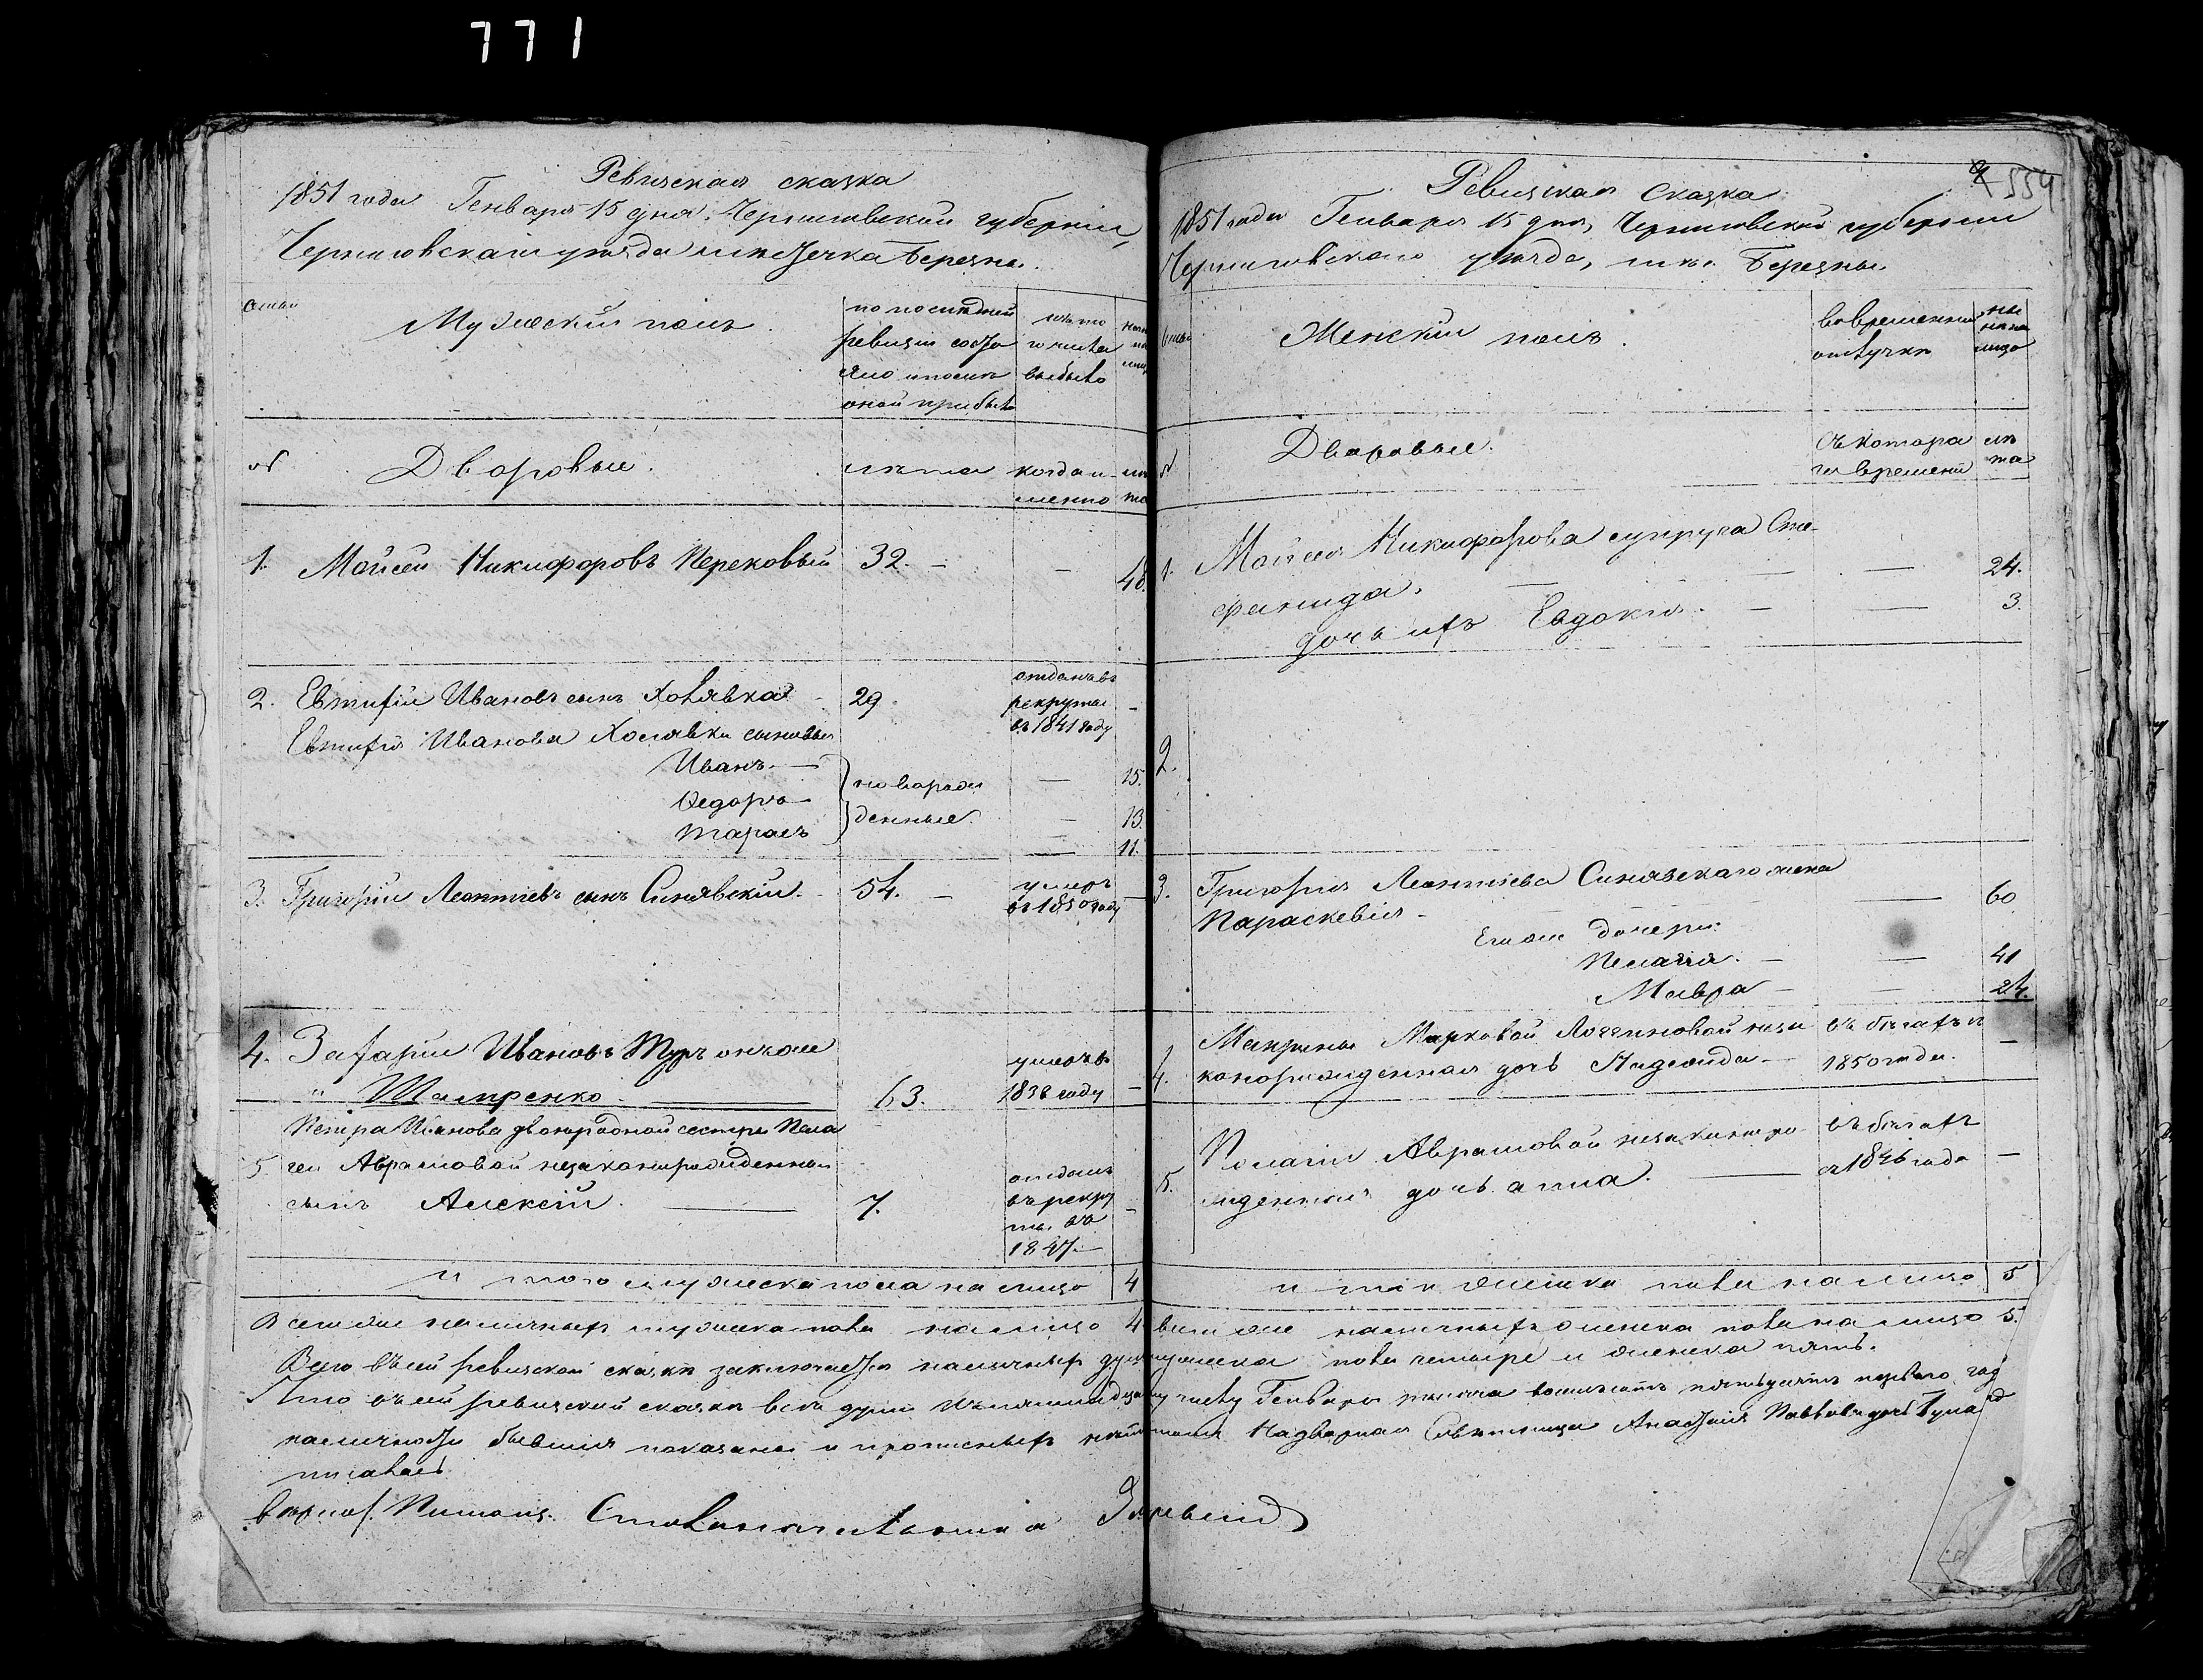 771
Ревизская сказка
1851 года Генваря 15 дня, Черниговской губерніи,
Черниговскаго уѣзда мѣстечка Березны.
Семьи
Мужескій полъ.
по послѣдней
ревизіи состо
яло и послѣ
оной прибыло
изъ то
го числа
выбыло
№
Дворовые.
лѣта
когда и
менно
лѣ
та
1. Мойсей Никифоровъ Перековый 32. — — 48.
2. Евтифій Ивановъ сынъ Холявка 29
отданъ въ
рекруты
въ 1841 году
Евтифія Иванова Холявки сыновья
Иванъ — 15.
Федоръ — 13.
Тарасъ — 11.
новорож
денные
3. Григорій Леонтіевъ сынъ Синявскій 54. —
умеръ
въ 1850 году
4. Захарій Ивановъ онъ же
63.
1838 году
Петра Иванова двоюродной сестры Пела
5. геи Аврамовой незаконнорожденный
сынъ Алексій. 7.
отданъ
въ рекру
ты въ
1847 —
и того мужеска пола на лицо 4
Ревизская Сказка
554
1851 года Генваря 15 дня, Черниговской губерніи
Черниговскаго уѣзда, мѣс. Березны.
Семьи
Женскій полъ.
во временной
отлучкѣ
ны
нѣ на
лицо
№
Дворовые.
Съ котора
го времени
лѣ
та
1. Мойсея Никифорова супруга Сте-
фанида. — — 24.
дочь ихъ Евдокія. — — 3.
2.
3. Григорія Леонтіева Синявскаго жена
Параскевія — — 60
Его же дочери:
Пелагія. — — 41
Мавра — — 24.
Марковой неза въ бѣгахъ съ
4. коннорожденная дочь 1850 года. —
Пелагіи Аврамовой незаконноро въ бѣгахъ
5. жденная дочь анна. — съ 1846 года —
и того женска пола на лицо 5
Всего же наличныхъ мужеска пола на лицо 4 всего же наличныхъ женска пола на лицо 5.
Всего въ сей ревизской сказкѣ заключается наличныхъ душъ мужеска пола четыре и женска пять.
Что въ сей ревизской сказкѣ всѣ души къ пятнадцатому числу Генваря тысяча восемьсотъ пятьдесятъ перваго года
наличности бывшія показаны и прописныхъ Надворная Совѣтница Анастасія
писалъ